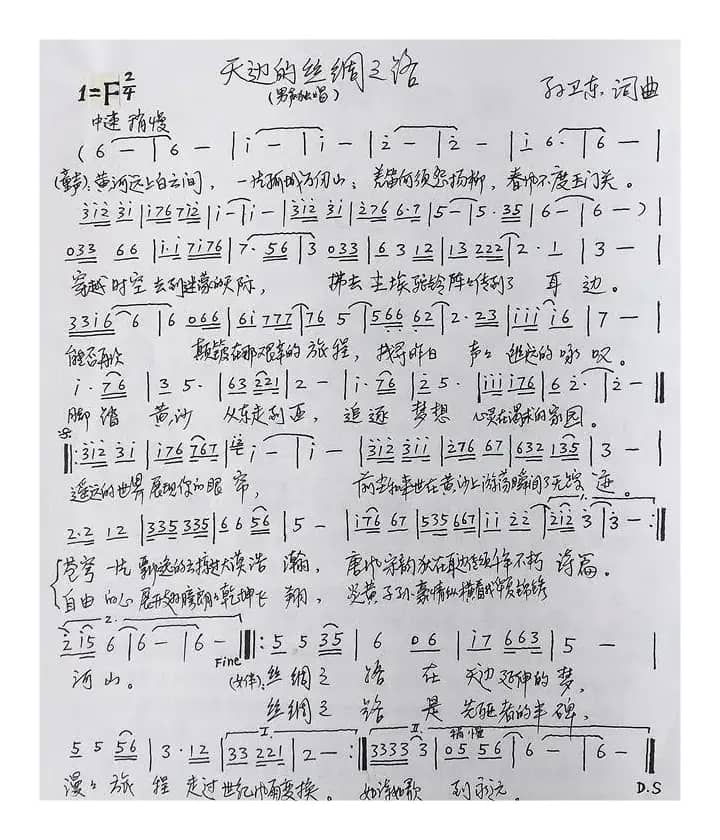 天边的丝绸之路
(男声独唱)
1=F 2/4
孙卫东 词曲
中速 稍慢
( 6 — | 6 — | i — | i — | 2 — | 2 — | i 6· | 6 — |
(童声):黄河远上白云间, 一片孤城万仞山; 羌笛何须怨杨柳, 春风不度玉门关。
312 31 | i76 7i2 | i — | i — | 312 31 | 276 6·7 | 5 — | 5· 35 | 6 — | 6 — ) |
033 66 | i·i 7i76 | 7· 56 | 3 033 | 6 3 12 | 13 222 | 2· 1 | 3 — |
穿越时空去到迷蒙的天际, 拂去尘埃驼铃阵阵传到了耳边。
33i6 6 | 6 066 | 6i 777 | 76 5 | 566 62 | 2· 23 | iii i6 | 7 — |
能否再次 颠簸在那艰辛的旅程, 找寻昨日声声遥远的咏叹。
i· 76 | 3 5· | 63 221 | 2 — | i· 76 | 2 5· | iii i76 | 6 2· | 2 — ‖
脚踏黄沙 从东走到西, 追逐梦想 心灵在渴求的家园。
312 31 | i76 767 | i — | i — | 312 3ii | 276 67 | 632 135 | 3 — |
遥远的世界展现你的眼帘, 前尘和来世在黄沙上游荡瞬间了无踪迹。
2·2 12 | 335 335 | 66 56 | 5 — | i76 67 | 535 667 | ii 22 | 2i2 3 | 3 — :‖
苍穹一片飘逸的云掠过大漠浩瀚, 唐风宋韵犹在耳边传颂千年不朽诗篇。
自由的心展开翅膀朗朗乾坤飞翔, 炎黄子孙豪情纵横看我华夏锦绣
2.
2 i5 6 | 6 — | 6 — ‖: 5 5 35 | 6 06 | i7 663 | 5 — |
Fine
河山。 (女伴):丝绸之路在天边延伸的梦,
丝绸之路是先驱者的丰碑,
I. II. 稍慢
5 5 56 | 3· 12 | 33 221 | 2 — :‖ 3333 3 | 05 56 | 6 — | 6 — ‖
漫漫旅程走过世纪风雨变换。 如诗如歌到永远。
D.S